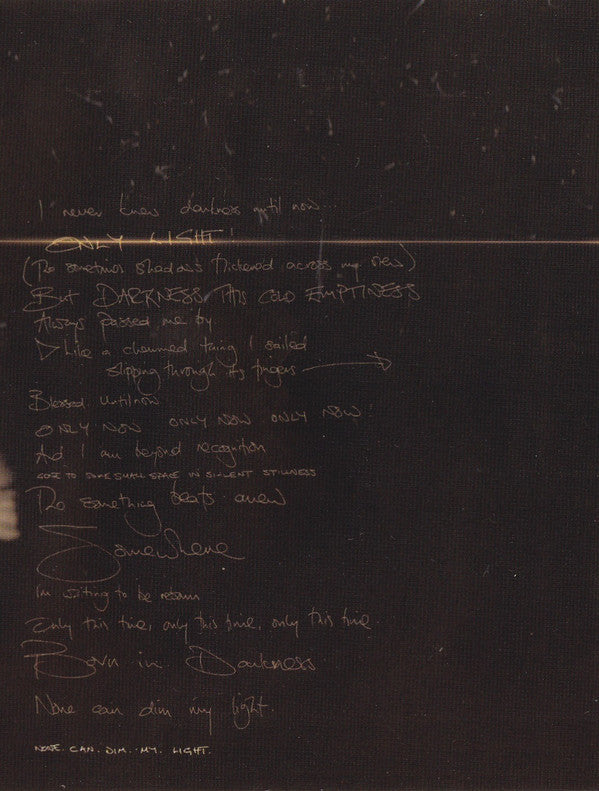 I never knew darkness until now...
ONLY LIGHT!
(Tho sometimes shadows flickered across my view)
But DARKNESS, THIS COLD EMPTINESS
Always passed me by
Like a charmed thing I sailed
slipping through its fingers
Blessed until now
ONLY NOW ONLY NOW ONLY NOW!
And I am beyond recognition
TO SOME SMALL SPACE IN SILENT STILLNESS
Tho something beats anew
Somewhere
I'm waiting to be reborn
Only this time, only this time, only this time.
Born in Darkness
None can dim my light.
NONE. CAN. DIM. MY. LIGHT.